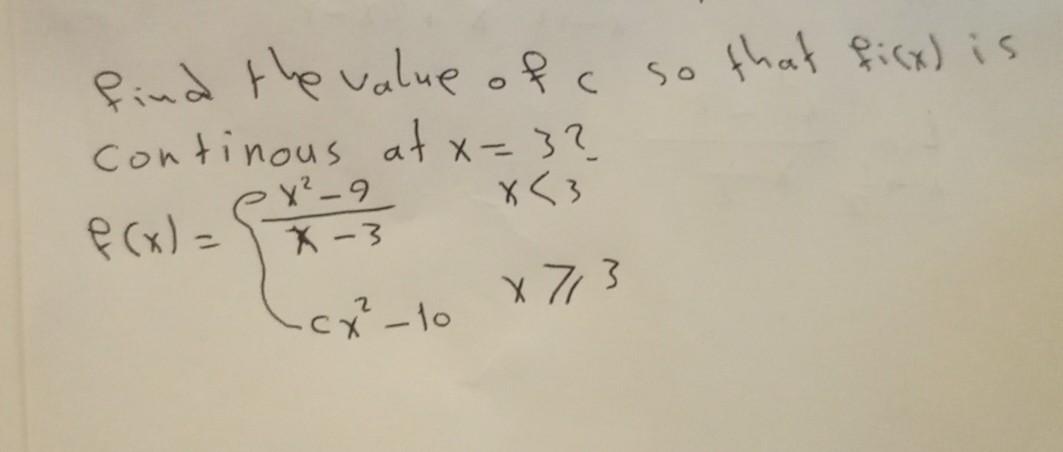 find the value of c so that fi(x) is
continous at x = 3?
f(x) = { x² - 9 / x - 3 x < 3
cx² - 10 x ⩾ 3